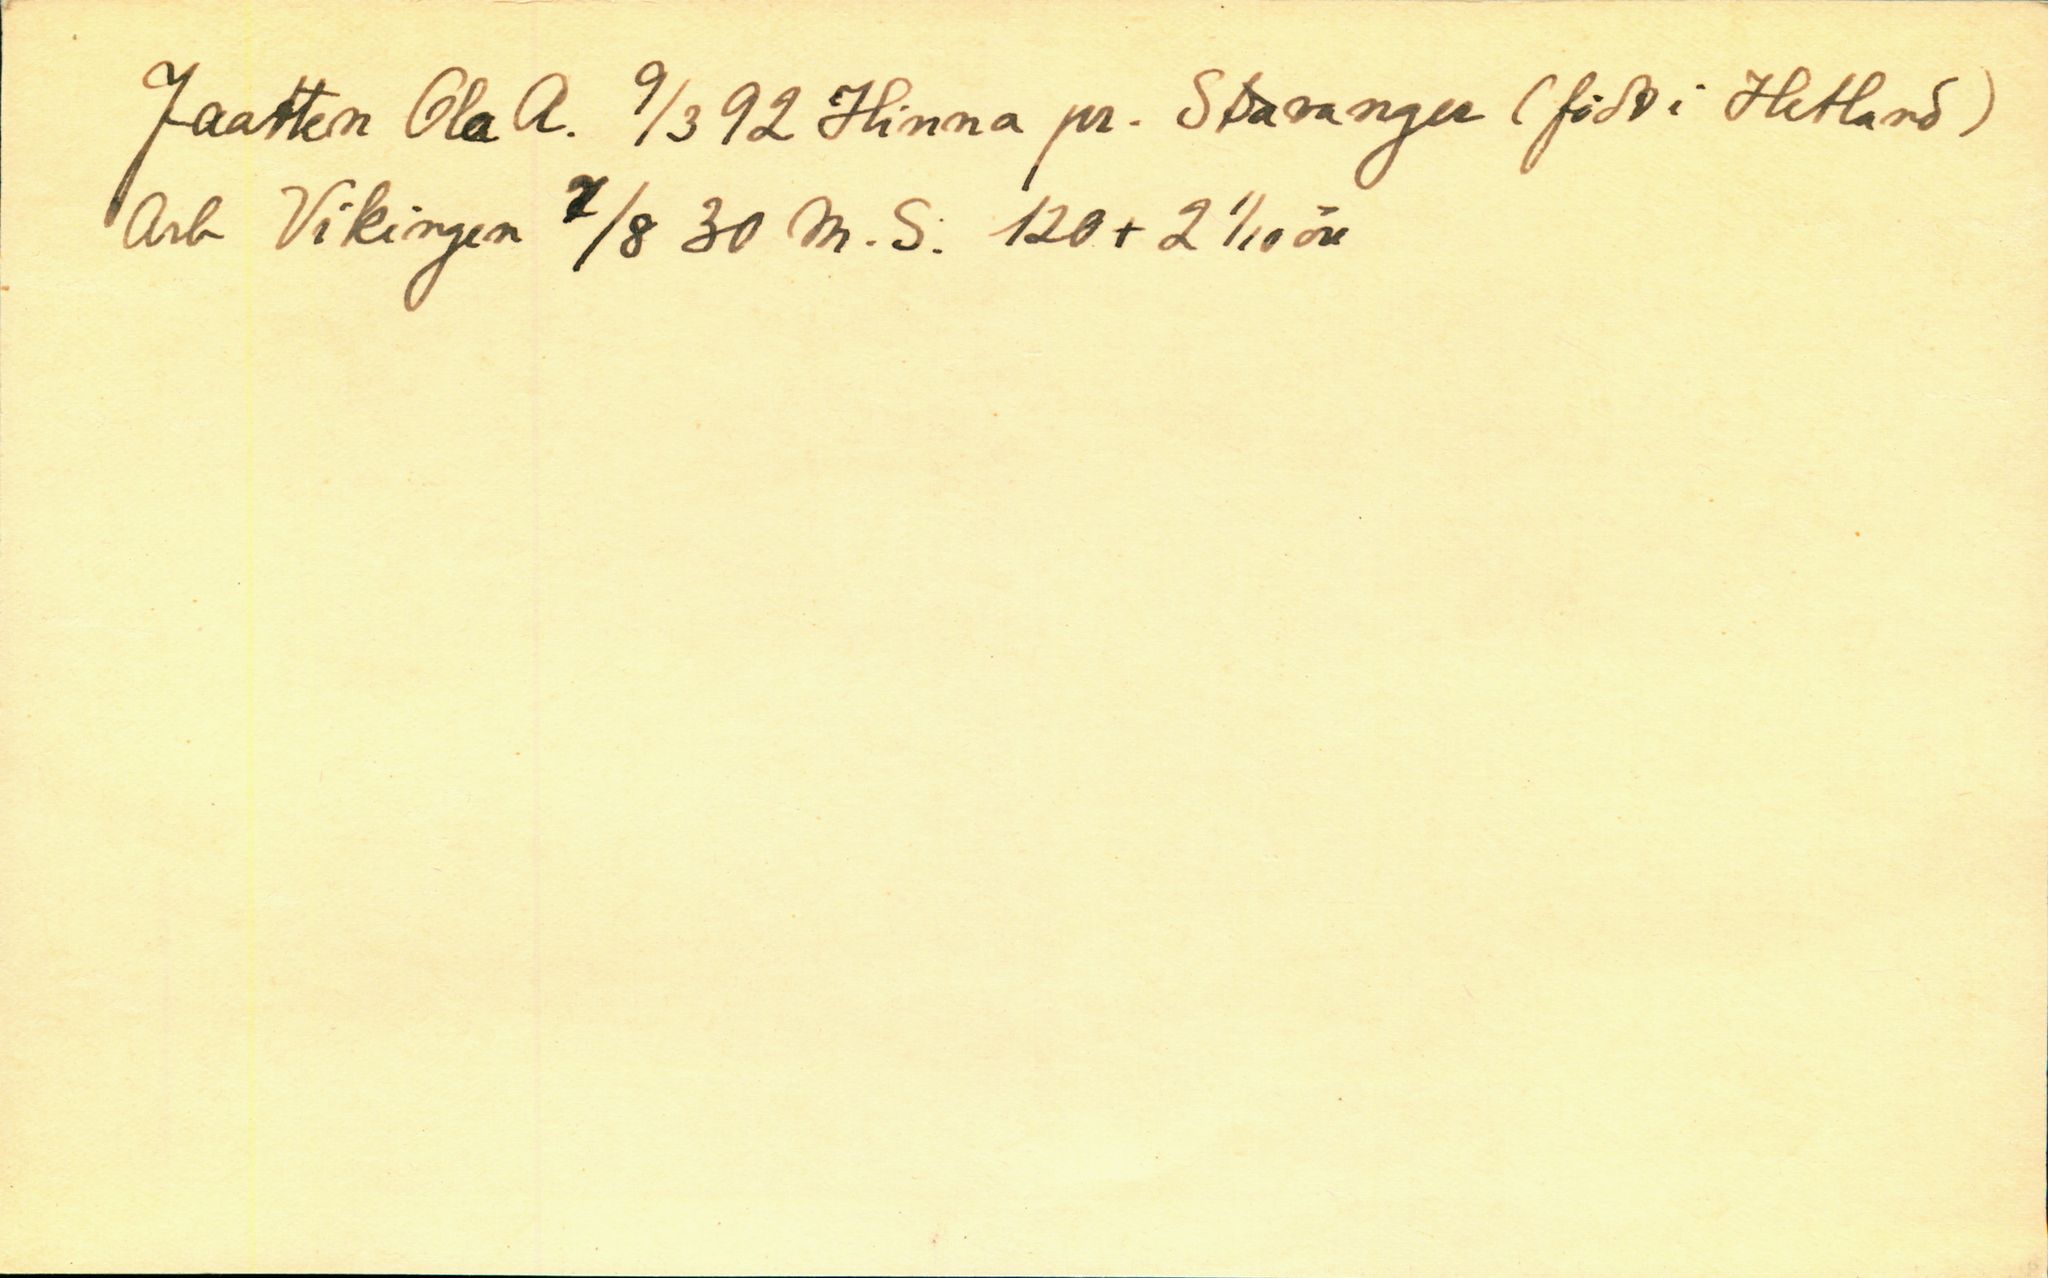 Jaatten Ola A. 9/3 92 Hinna pr. Stavanger (född i Hetland)
Arb Vikingen 7/8 30 M.S. 120 + 2 1/10 öre